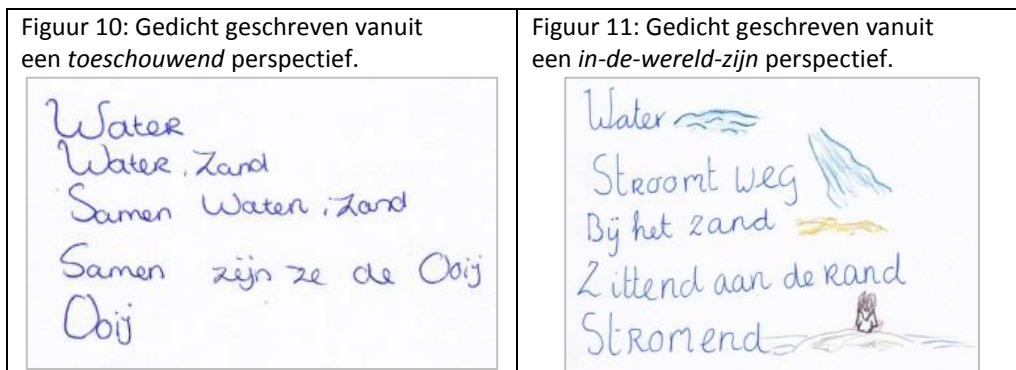 Figuur 10: Gedicht geschreven vanuit
een toeschouwend perspectief.
Water
Water, Zand
Samen Water, Zand
Samen zijn ze de Ooij
Ooij
Figuur 11: Gedicht geschreven vanuit
een in-de-wereld-zijn perspectief.
Water
Stroomt weg
Bij het zand
Zittend aan de rand
Stromend